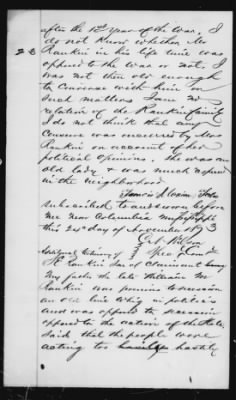 after the 1st year of the war. I
do not know whether Mr
23 Rankin in his life time was
opposed to the war or not. I
was not then old enough
to converse with him on
such matters I am no
relation of the Rankin family
I do not think that any
censure was incurred by Mrs
Rankin on account of her
political opinions. She was an
old lady & was much respected
in the neighborhood.
Francis A
Subscribed to and sworn before
me near Columbia Mississippi
this 24th day of November 1873
Spec Com
Additional Testimony of
Rankin Son of Claimant
My father the late William M
Rankin was previous to secession
an old line Whig in politics
and was opposed to secession
opposed to the action of the State.
Said that the people were
acting too hastily